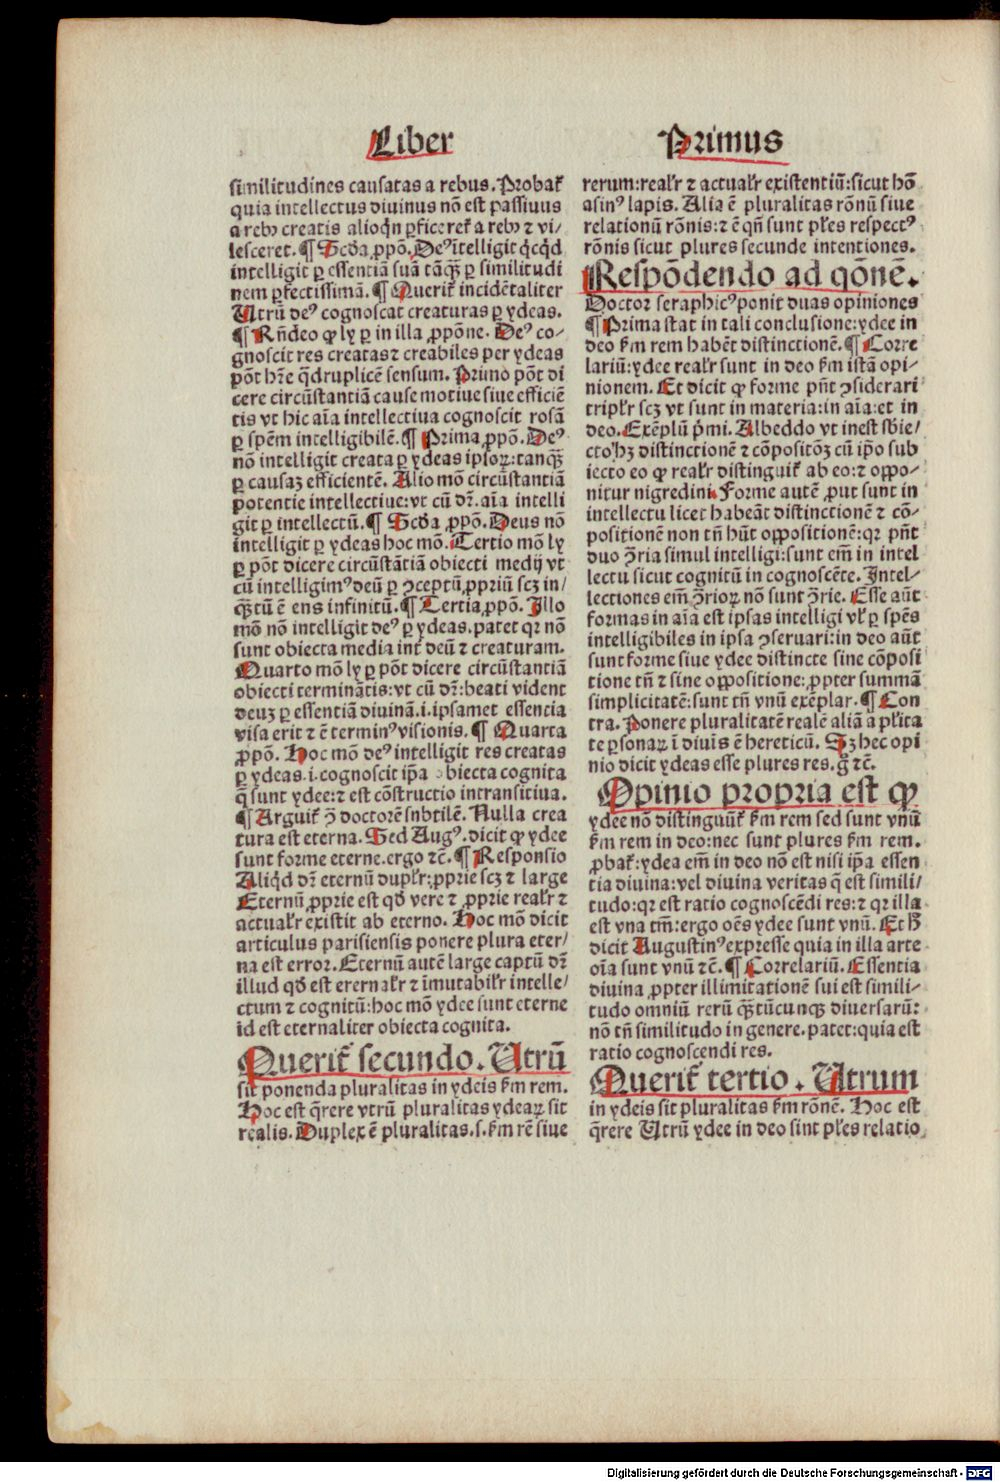 Liber Primus
similitudines causatas a rebus. Probat᷑
quia intellectus diuinus nō est passiuus
a rebꝫ creatis alioq̇n ꝑficeret᷑ a rebꝫ ⁊ vi⸗
lesceret. ¶ Scďa ꝓpō. Deꝰ ītelligit q̇cq̇d
intelligit ꝑ essentiā suā tāqꝫ̄ ꝑ similitudi
nem ꝑfectissimā. ¶ Querit᷑ incidētaliter
Utrū deꝰ cognoscat creaturas ꝑ ydeas.
¶ Rn̄deo ꝙ ly ꝑ in illa ꝓpōne. Deꝰ co⸗
gnoscit res creatas ⁊ creabiles per ydeas
pōt hr̄e q̄druplicē sensum. Primo pōt di
cere circūstantiā cause motiue siue efficiē
tis vt hic aīa intellectiua cognoscit rosā
ꝑ spēm intelligibilē. ¶ Prima ꝓpō. Deꝰ
nō intelligit creata ꝑ ydeas ipsoꝝ: tanqꝫ̄
ꝑ causaꝫ efficientē. Alio mō circūstantiā
potentie intellectiue: vt cū dr̄. aīa intelli
git ꝑ intellectū. ¶ Scďa ꝓpō. Deus nō
intelligit ꝑ ydeas hoc mō. Tertio mō ly
ꝑ pōt dicere circūstātiā obiecti medij vt
cū intelligimꝰ deū ꝑ ꝯceptū ꝓpriū scꝫ in/
qꝫ̄tū ē ens infinitū. ¶ Tertia ꝓpō. Illo
mō nō intelligit deꝰ ꝑ ydeas. patet qꝛ nō
sunt obiecta media int̄ deū ⁊ creaturam.
Quarto mō ly ꝑ pōt dicere circūstantiā
obiecti terminātis: vt cū dr̄: beati vident
deuꝫ ꝑ essentiā diuinā. i. ipsamet essentia
visa erit ⁊ ē terminꝰ visionis. ¶ Quarta
ꝓpō. Hoc mō deꝰ intelligit res creatas
ꝑ ydeas. i. cognoscit ip̄a obiecta cognita
q̄ sunt ydee: ⁊ est cōstructio intransitiua.
¶ Arguit᷑ ꝯ̄ doctorē snbtilē. Nulla crea
tura est eterna. Sed Augꝰ. dicit ꝙ ydee
sunt forme eterne. ergo ⁊c̄. ¶ Responsio
Aliq̇d dr̄ eternū dupłr: ꝓprie scꝫ ⁊ large
Eternū ꝓprie est qď vere ⁊ ꝓprie realr̄ ⁊
actualr̄ existit ab eterno. Hoc mō dicit
articulus parisiensis ponere plura eter/
na est error. Eternū autē large captū dr̄
illud qď est erernalr̄ ⁊ īmutabilr̄ intelle/
ctum ⁊ cognitū: hoc mō ydee sunt eterne
id est eternaliter obiecta cognita.
Querit᷑ secundo. Utrū
sit ponenda pluralitas in ydeis s̄m rem.
Hoc est q̄rere vtrū pluralitas ydeaꝝ sit
realis. Duplex ē pluralitas. s. s̄m rē siue
rerum: realr̄ ⁊ actualr̄ existentiū: sicut hō
asinꝰ lapis. Alia ē pluralitas rōnū siue
relationū rōnis: ⁊ ē qn̄ sunt płes respectꝰ
rōnis sicut plures secunde intentiones.
Respōdendo ad qōnē.
Doctor seraphicꝰ ponit duas opiniones
¶ Prima stat in tali conclusione: ydee in
deo s̄m rem habēt distinctionē. ¶ Corre
lariū: ydee realr̄ sunt in deo s̄m istā opi⸗
nionem. Et dicit ꝙ forme pn̄t ꝯsiderari
triplr̄ scꝫ vt sunt in materia: in aīa: et in
deo. Exēplū p̄mi. Albeddo vt inest sb̄ie/
cto hꝫ distinctionē ⁊ cōpositōꝫ cū ip̄o sub
iecto eo ꝙ realr̄ distinguit᷑ ab eo: ⁊ oppo⸗
nitur nigredini. Forme autē ꝓut sunt in
intellectu licet habeāt distinctionē ⁊ cō⸗
positionē non tn̄ hn̄t oppositionē: qꝛ pn̄t
duo ꝯ̄ria simul intelligi: sunt em̄ in intel
lectu sicut cognitū in cognoscēte. Intel⸗
lectiones em̄ ꝯ̄rioꝝ nō sunt ꝯ̄rie. Esse aūt
formas in aīa est ipsas intelligi vł ꝑ spēs
intelligibiles in ipsa ꝯseruari: in deo aūt
sunt forme siue ydee distincte sine cōposi
tione tn̄ ⁊ sine oppositione: ꝓpter summā
simplicitatē: sunt tn̄ vnū exēplar. ¶ Con
tra. Ponere pluralitatē realē aliā a płita
te ꝑsonaꝝ ī diuīs ē hereticū. Sꝫ hec opi
nio dicit ydeas esse plures res. g̊ ⁊c̄.
Opinio propria est ꝙ
ydee nō distinguūt᷑ s̄m rem sed sunt vnū
s̄m rem in deo: nec sunt plures s̄m rem.
ꝓbat᷑: ydea em̄ in deo nō est nisi ip̄a essen
tia diuina: vel diuina veritas q̄ est simili/
tudo: qꝛ est ratio cognoscēdi res: ⁊ qꝛ illa
est vna tm̄: ergo oēs ydee sunt vnū. Et h̄
dicit Augustinꝰ expresse quia in illa arte
oīa sunt vnū ⁊c̄. ¶ Correlariū. Essentia
diuina ꝓpter illimitationē sui est simili⸗
tudo omniū rerū qꝫ̄tūcunqꝫ diuersarū:
nō tn̄ similitudo in genere. patet: quia est
ratio cognoscendi res.
Querit᷑ tertio. Utrum
in ydeis sit pluralitas s̄m rōnē. Hoc est
q̄rere Utrū ydee in deo sint płes relatio
Digitalisierung gefördert durch die Deutsche Forschungsgemeinschaft - DFG